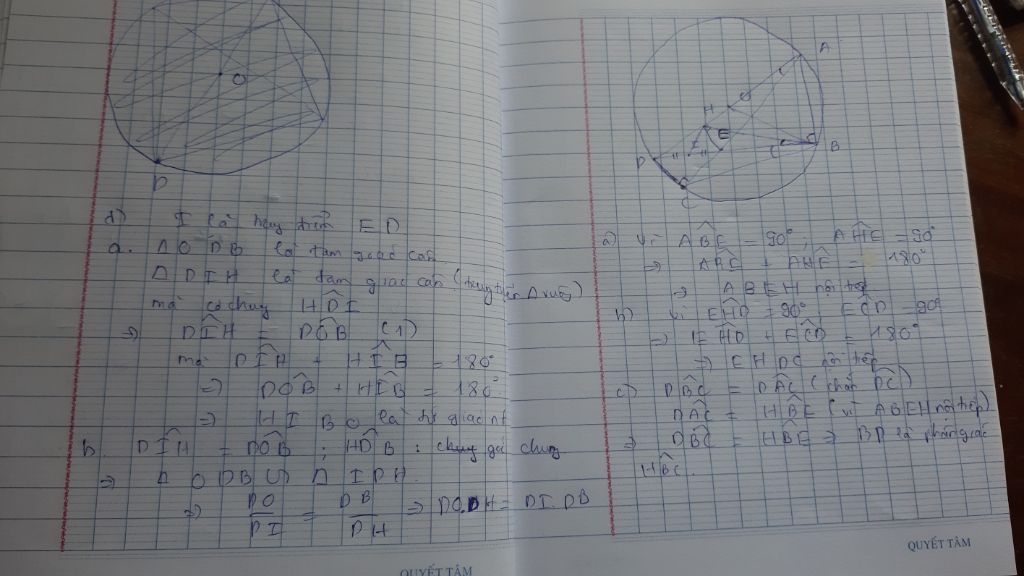 O
D
d) I là trung điểm ED
a. Δ ODB là tam giác cân
Δ DIH là tam giác cân (trung tuyến Δ vuông)
mà có chung HDI
⇒ DIH = DOB (1)
mà DIH + HIB = 180°
⇒ DOB + HIB = 180°
⇒ HIBO là tứ giác nt
b. DIH = DOB ; HDB : chung góc chung
⇒ Δ ODB ∽ Δ IDH
⇒ DO/DI = DB/DH ⇒ DO.DH = DI.DB
QUYẾT TÂM
A
O
H
E
I
B
D
C
a) Vì ABE = 90° ; AHE = 90°
⇒ + AHE = 180°
⇒ ABEH nội tiếp
b) Vì EHD = 90° ECD = 90°
⇒ EHD + ECD = 180°
⇒ EHDC nội tiếp
c) DBC = DAC (chắn DC)
DAC = HBE (vì ABEH nội tiếp)
⇒ DBC = HBE ⇒ BD là phân giác
HBC.
QUYẾT TÂM